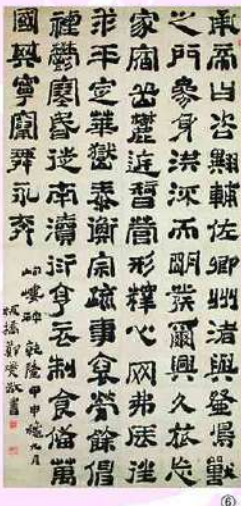 承帝曰咨翼輔佐卿州渚與登鳥獸
之門參身洪流而明發爾興久旅忘
家宿嶽麓近智營形釋心网弗辰往
求平定華嶽泰衡宗疏事裒勞餘伸
禋鬱塞昏徙南瀆衍亨衣制食備萬
國其寧竄舞永奔
岣嶁碑 乾隆甲申穐九月
板橋鄭燮敬書
⑥